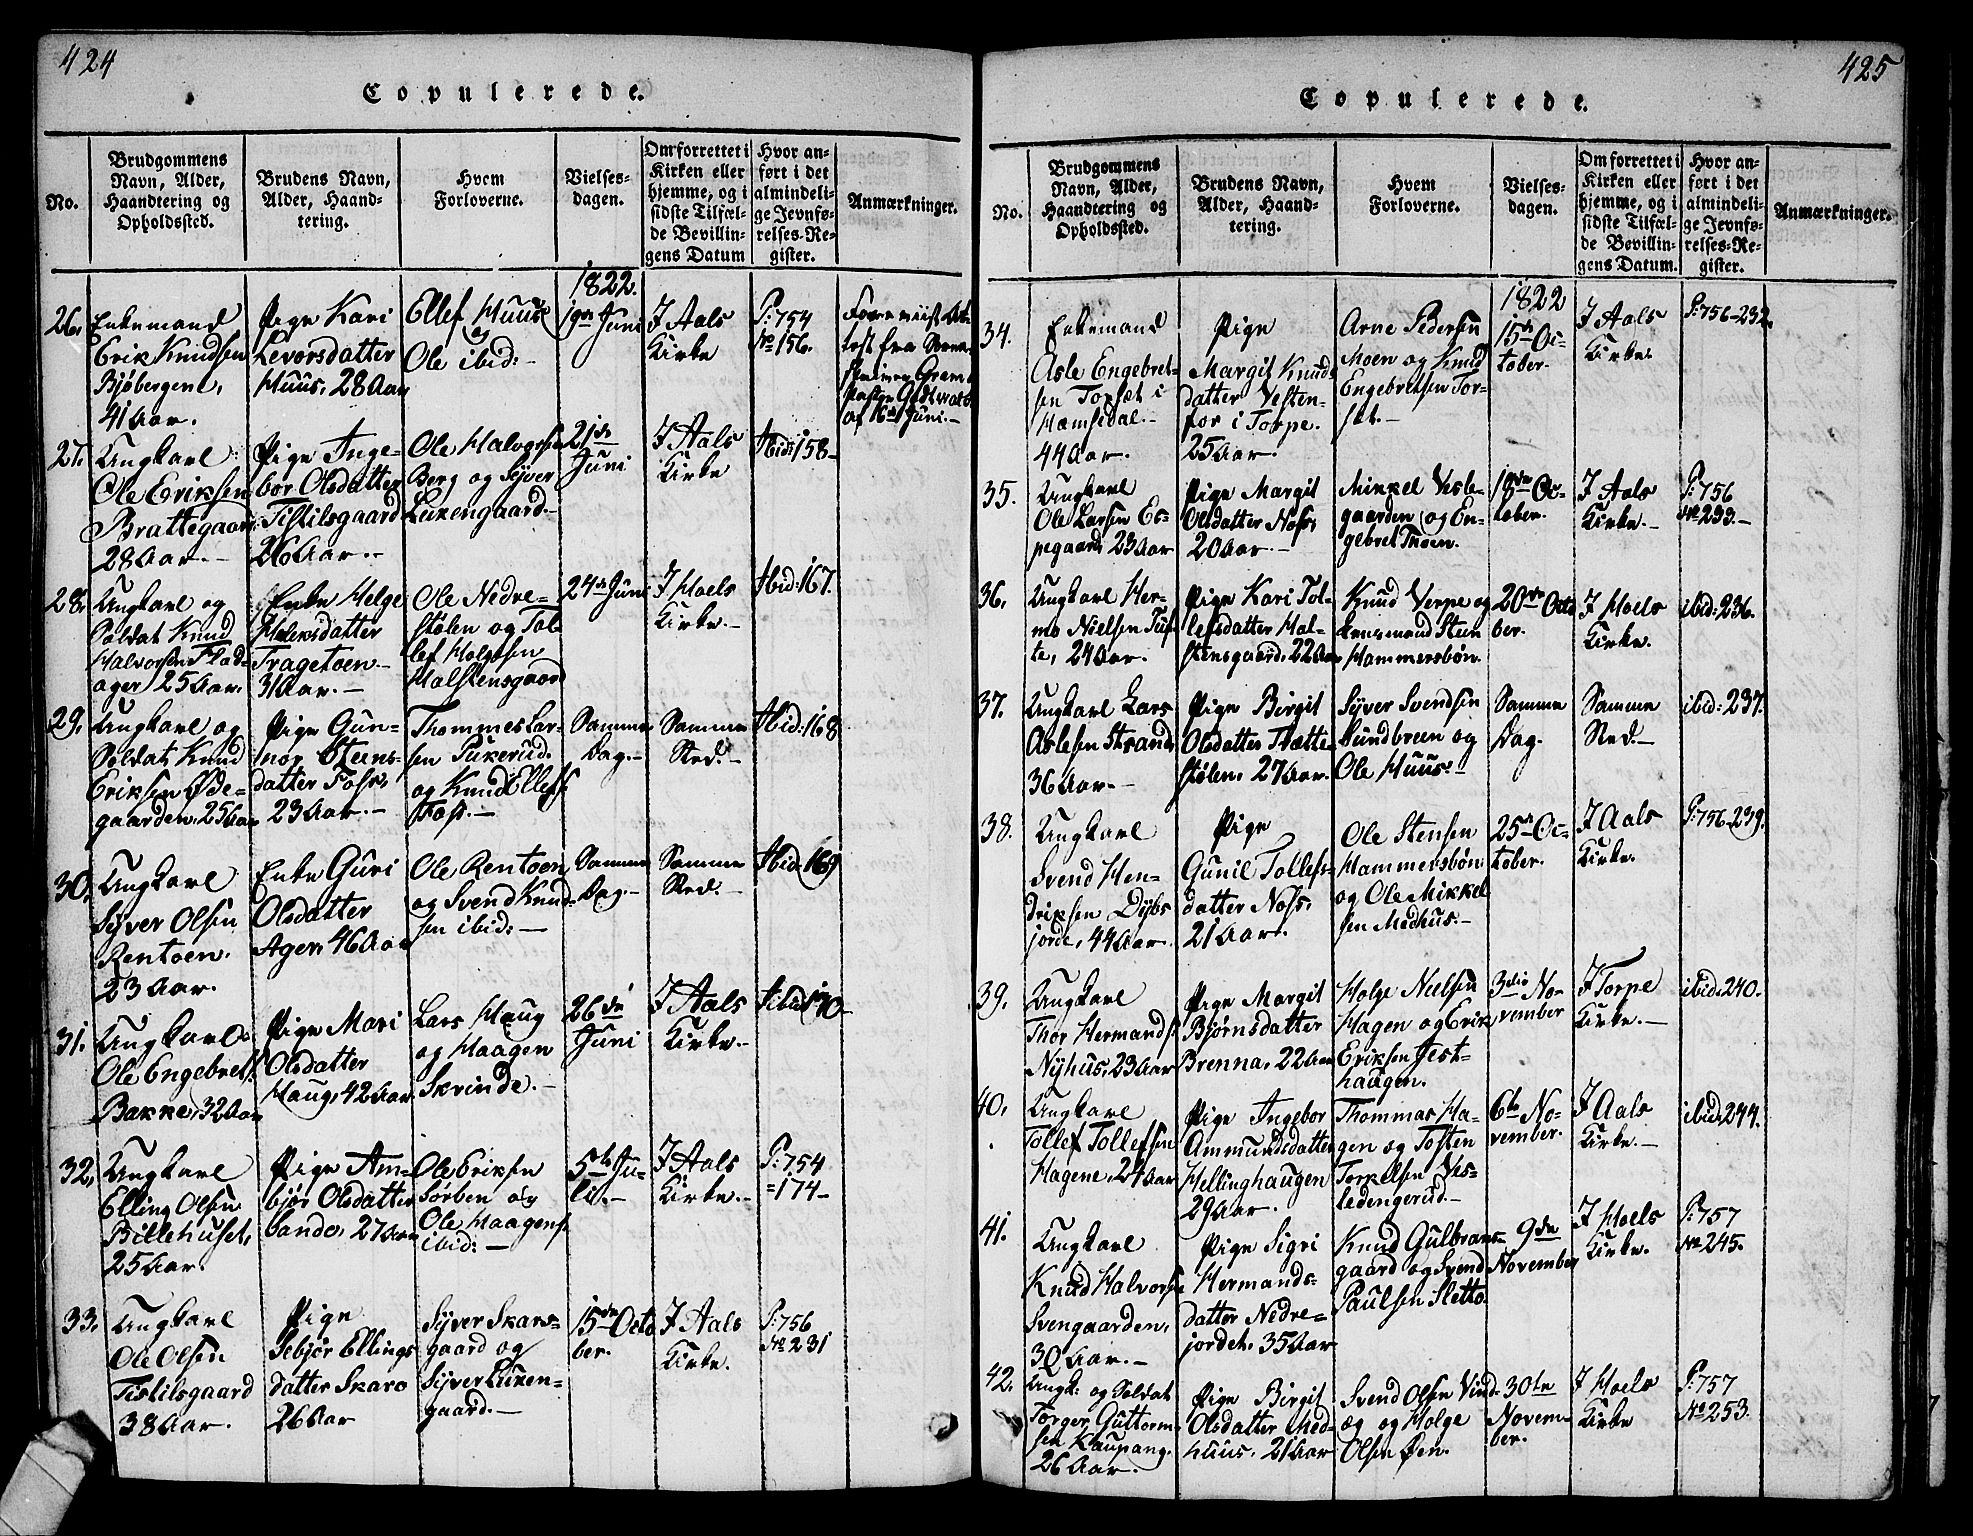 424
Copulerede.
No.
Brudgommens Navn, Alder, Haandtering og Opholdssted.
Brudens Navn, Alder, Haandtering.
Hvem Forloverne.
Vielses-dagen.
Om forrettet i Kirken eller hjemme, og i sidste Tilfælde Bevillingens Datum
Hvor anført i det almindelige Jevnførelses-Register.
Anmærkninger.
1822.
26.
Enkemand
Erik Knudsen
Bjøbergene,
41 Aar.
Pige Kari
Levorsdatter
Huus, 28 Aar
Ellef Huus
og
Ole ibid:
Juni
I Aals
Kirke
P: 754
No 156.
27.
Ungkarl
Ole Eriksen
Brattegaard
28 Aar.
Pige Inge-
bor Olsdatter
Tistilsgaard
26 Aar.
Ole Halvorsen
Berg og Syver
Luxengaard
21de
Juni
I Aals
Kirke
Ibid: 158
28.
Ungkarl og
Soldat Knud
Halvorsen Flad-
ager 25 Aar.
Enke Helge
Tragetoen
31 Aar.
Ole Nedre-
stølen og Tol-
lef Holgesen
Halstensgaard
24de Juni
I Hoels
Kirke.
Ibid: 167.
29.
Ungkarl og
Soldat Knud
Eriksen Øde-
gaarden, 25 Aar
Pige Gun-
nor Steens-
datter Foss,
23 Aar.
Thommes Lar-
sen Pukerud
og Knud Ellefs.
Foss.
Samme
Dag.
Samme
Sted.
Ibid: 168
30.
Ungkarl
Syver Olsen
Rentoen.
23 Aar.
Enke Guri
Olsdatter
Ager, 46 Aar
Ole Rentoen
og Svend Knud-
sen ibid:
Samme
Dag.
Samme
Sted.
Ibid: 169
31.
Ungkarl
Ole Engebrets.
Bakke, 32 Aar
Pige Mari
Olsdatter
Haug, 42 Aar
Lars Haug
og Haagen
Skrinde.
26de
Juni
I Aals
Kirke.
Ibid: 170
32.
Ungkarl
Elling Olsen
Billehuset,
25 Aar.
Pige Am-
bjør Olsdatter
Sando, 27 Aar
Ole Eriksen
Sørben og
Ole Haagens.
ibid:
5te Ju-
li.
I Aals
Kirke.
P: 754
=174
33.
Ungkarl
Ole Olsen
Tistilsgaard
38 Aar.
Pige
Sebjør Ellings
datter Skaro
26 Aar
Syver Skars-
gaard og
Syver Luxen-
gaard.
15de Octo
ber.
I Aals
Kirke.
P: 756
No 231
425
Copulerede.
No.
Brudgommens Navn, Alder, Haandtering og Opholdssted.
Brudens Navn, Alder, Haandtering.
Hvem Forloverne.
Vielses-dagen.
Om forrettet i Kirken eller hjemme, og i sidste Tilfælde Bevillingens Datum.
Hvor anført i det almindelige Jevnførelses-Register.
Anmærkninger.
1822
34.
Enkemand
Asle Engebret-
sen Torset i
Hæmsedal.
44 Aar.
Pige
Margit Knuds
datter Vesten-
for i Torpe.
25 Aar.
Arne Pedersen
Moen og Knud
Engebretsen Tor-
set.
15de Oc-
tober.
I Aals
Kirke.
P: 756-232.
35.
Ungkarl
Ole Larsen Es-
pegaard, 23 Aar
Pige Margit
Olsdatter Noss,
20 Aar.
Mikkel Vesle-
gaarden og En-
gebret Thoen.
Oc-
tober.
I Aals
Kirke.
P: 756
No 233.
36.
Ungkarl Her-
mo Nielsen Tuf-
te, 24 Aar.
Pige Kari Tol-
lefsdatter Hal-
stensgaard, 22 Aar
Knud Verpe og
Lensmand Steen
Hammersbøn.
20de Octo
ber.
I Hoels
Kirke.
ibid: 236.
37.
Ungkarl Lars
Aslesen Strand
36 Aar.
Pige Birgit
Olsdatter Trætte-
stølen, 27 Aar.
Syver Svendsen
Sundbreen og
Ole Huus.
Samme
Dag.
Samme
Sted.
ibid: 237.
38.
Ungkarl
Svend Hen-
driksen Dybs
jorde, 44 Aar.
Pige
Gunil Tollefs-
datter Noss,
21 Aar.
Ole Stensen
Hammersbøn
og Ole Mikkel
sen Medhus.
25de Oc-
tober.
I Aals
Kirke.
P: 756-239.
39.
Ungkarl
Thor Hermands.
Nyhus, 23 Aar
Pige Margit
Bjørnsdatter
Brenna, 22 Aar
Holge Nielsen
Hagen og Erik
Eriksen Jest-
haugen.
3die No-
vember
I Torpe
Kirke.
ibid: 240.
40.
Ungkarl
Tollef Tollefsen
Hagene, 24 Aar
Pige Ingebor
Ammundsdatter
Hellinghaugen
29 Aar.
Thommas Ha-
gen og Tosten
Torkelsen Ves-
ledengerud.
6te No-
vember.
I Aals
Kirke.
ibid: 244.
41.
Ungkarl
Knud Halvorsen
Svengaarden,
30 Aar.
Pige Sigri
Hermands-
datter Nedre-
jordet, 35 Aar
Knud Gulbrans-
gaard og Svend
Paulsen Sletto.
9de
November
I Hoels
Kirke.
P: 757
No 245.
42.
Ungk. og Soldat
Torger Guttorm-
sen Kaupang.
26 Aar.
Pige Birgit
Olsdatter Med-
huus, 21 Aar
Svend Olsen Vind-
eg og Holge
Olsen Øen.
30te
Novem-
ber.
I Hoels
Kirke
P: 757
No 253.